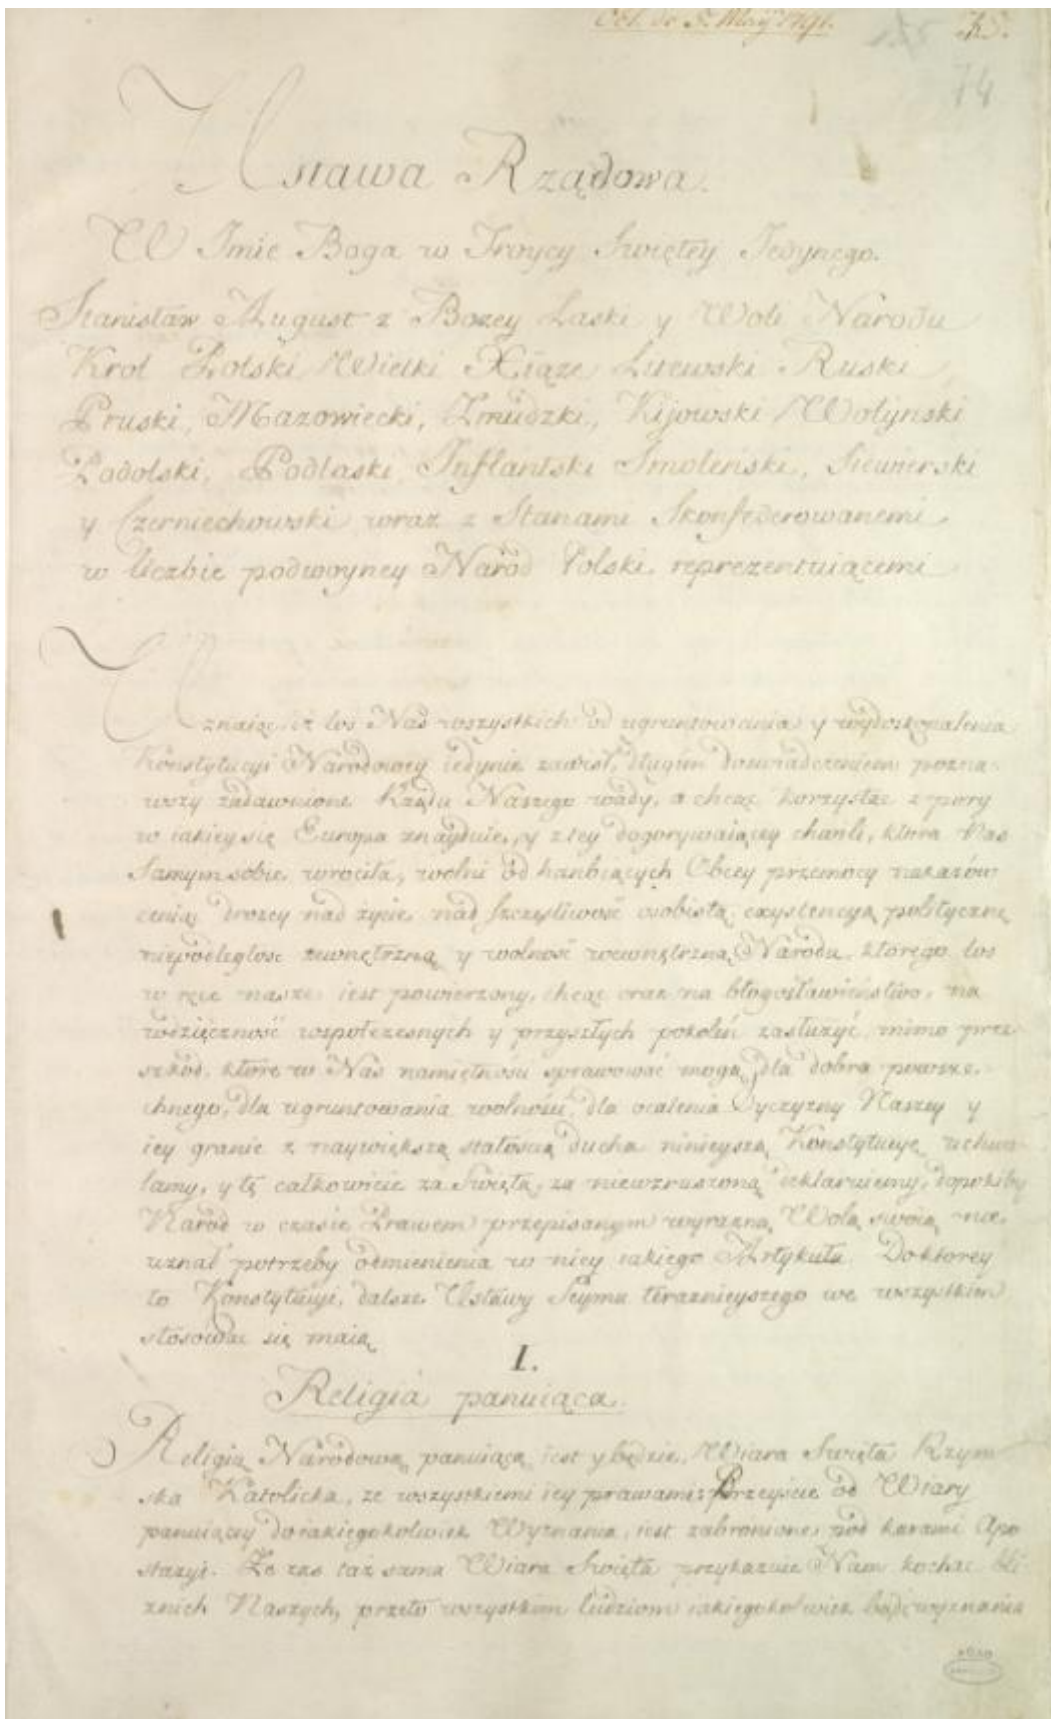 Obl. de 5. Maij 1791.
74
Ustawa Rządowa.
W Imie Boga w Troycy Swiętey Jedynego.
Stanisław August z Bozey Łaski y Woli Narodu
Krol Polski Wielki Xiąze Litewski Ruski
Pruski, Mazowiecki, Zmudzki, Kijowski Wołyński
Podolski, Podlaski Inflantski Smoleński, Siewierski
y Czerniechowski wraz z Stanami Skonfederowanemi
w liczbie podwoyney Naród Polski reprezentuiącemi
Uznaiąc, iż los Nas wszystkich od ugruntowania y wydoskonalenia
Konstytucyi Narodowey iedynie zawisł, długim doswiadczeniem pozna-
wszy zadawnione Rządu Naszego wady, a chcąc korzystać z pory
w iakiey się Europa znayduie, y z tey dogorywaiącey chwili, która Nas
samym sobie wróciła, wolni od hanbiących Obcey przemocy nakazów
ceniąc drozey nad zycie, nad szczęsliwość osobistą, exystencyą polityczną
niepodległość zewnętrzną y wolność wewnętrzną Narodu, którego los
w ręce nasze iest powierzony, chcąc oraz na błogosławieństwo, na
wdzięczność wspołczesnych y przyszłych pokoleń zasłuzyć, mimo prze-
szkód, które w Nas namiętności sprawować mogą, dla dobra powsze-
chnego, dla ugruntowania wolności, dla ocalenia Oyczyzny Naszey y
iey granic z naywiększą stałością ducha ninieyszą Konstytucyę uchwa-
lamy, y tę całkowicie za Swiętą, za niewzruszoną deklaruiemy, dopókiby
Naród w czasie Prawem przepisanym wyrazną Wolą swoią nie
uznał potrzeby odmienienia w niey iakiego Artykułu. Doktorey
to Konstytucyi, dalsze Ustawy Seymu teraznieyszego we wszystkim
stósować się maią
I.
Religia panuiąca.
Religią Narodową panuiącą iest y będzie, Wiara Swięta Rzym
ska Katolicka, ze wszystkiemi iey prawami: Przeyście od Wiary
panuiącey do iakiegokolwiek Wyznania, iest zabronione pod karami Apo
stazyi. Że zas taż sama Wiara Swięta przykazuie Nam kochać bli
znich Naszych, przeto wszystkim ludziom iakiegokolwiek bądź wyznania